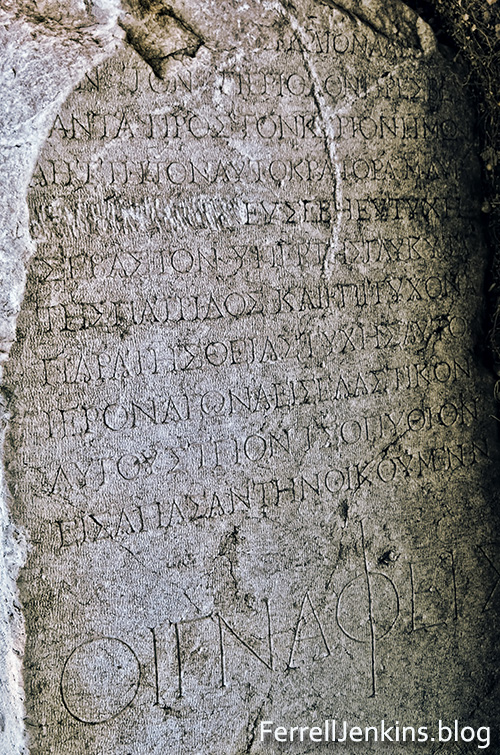 ΠΕΡΙΟΔΟΝ
ΑΝΤΑ ΠΡΟΣ ΤΟΝ ΚΥΡΙΟΝ ΗΜΩ
ΛΗΤΤΗΤΟΝ ΑΥΤΟΚΡΑΤΟΡΑ ΜΑΚ
ΕΥΣΕΒΗ ΕΥΤΥΧΗ
ΣΕΒΑΣΤΟΝ ΥΠΕΡ ΤΗΣ ΓΛΥΚΥΤΑ
ΤΗΣ ΠΑΤΡΙΔΟΣ ΚΑΙ ΕΠΙΤΥΧΟΝ
ΠΑΡΑ ΤΗΣ ΘΕΙΑΣ ΤΥΧΗΣ ΑΥΤΟ
ΙΕΡΟΝ ΑΓΩΝΑ ΕΙΣΕΛΑΣΤΙΚΟΝ
ΑΥΓΟΥΣΤΕΙΟΝ ΙΣΟΠΥΘΙΟΝ
ΕΙΣ ΑΠΑΣΑΝ ΤΗΝ ΟΙΚΟΥΜΕΝΗΝ
ΟΙ ΓΝΑΦΕΙΣ
FerrellJenkins.blog